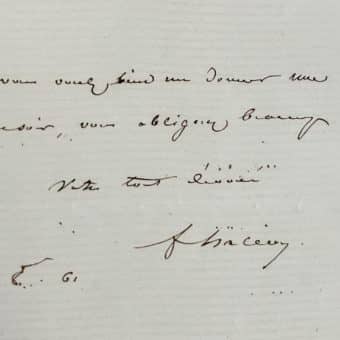 vous voulez bien me donner une
soir, vous obligerez beaucoup
Votre tout dévoué
61